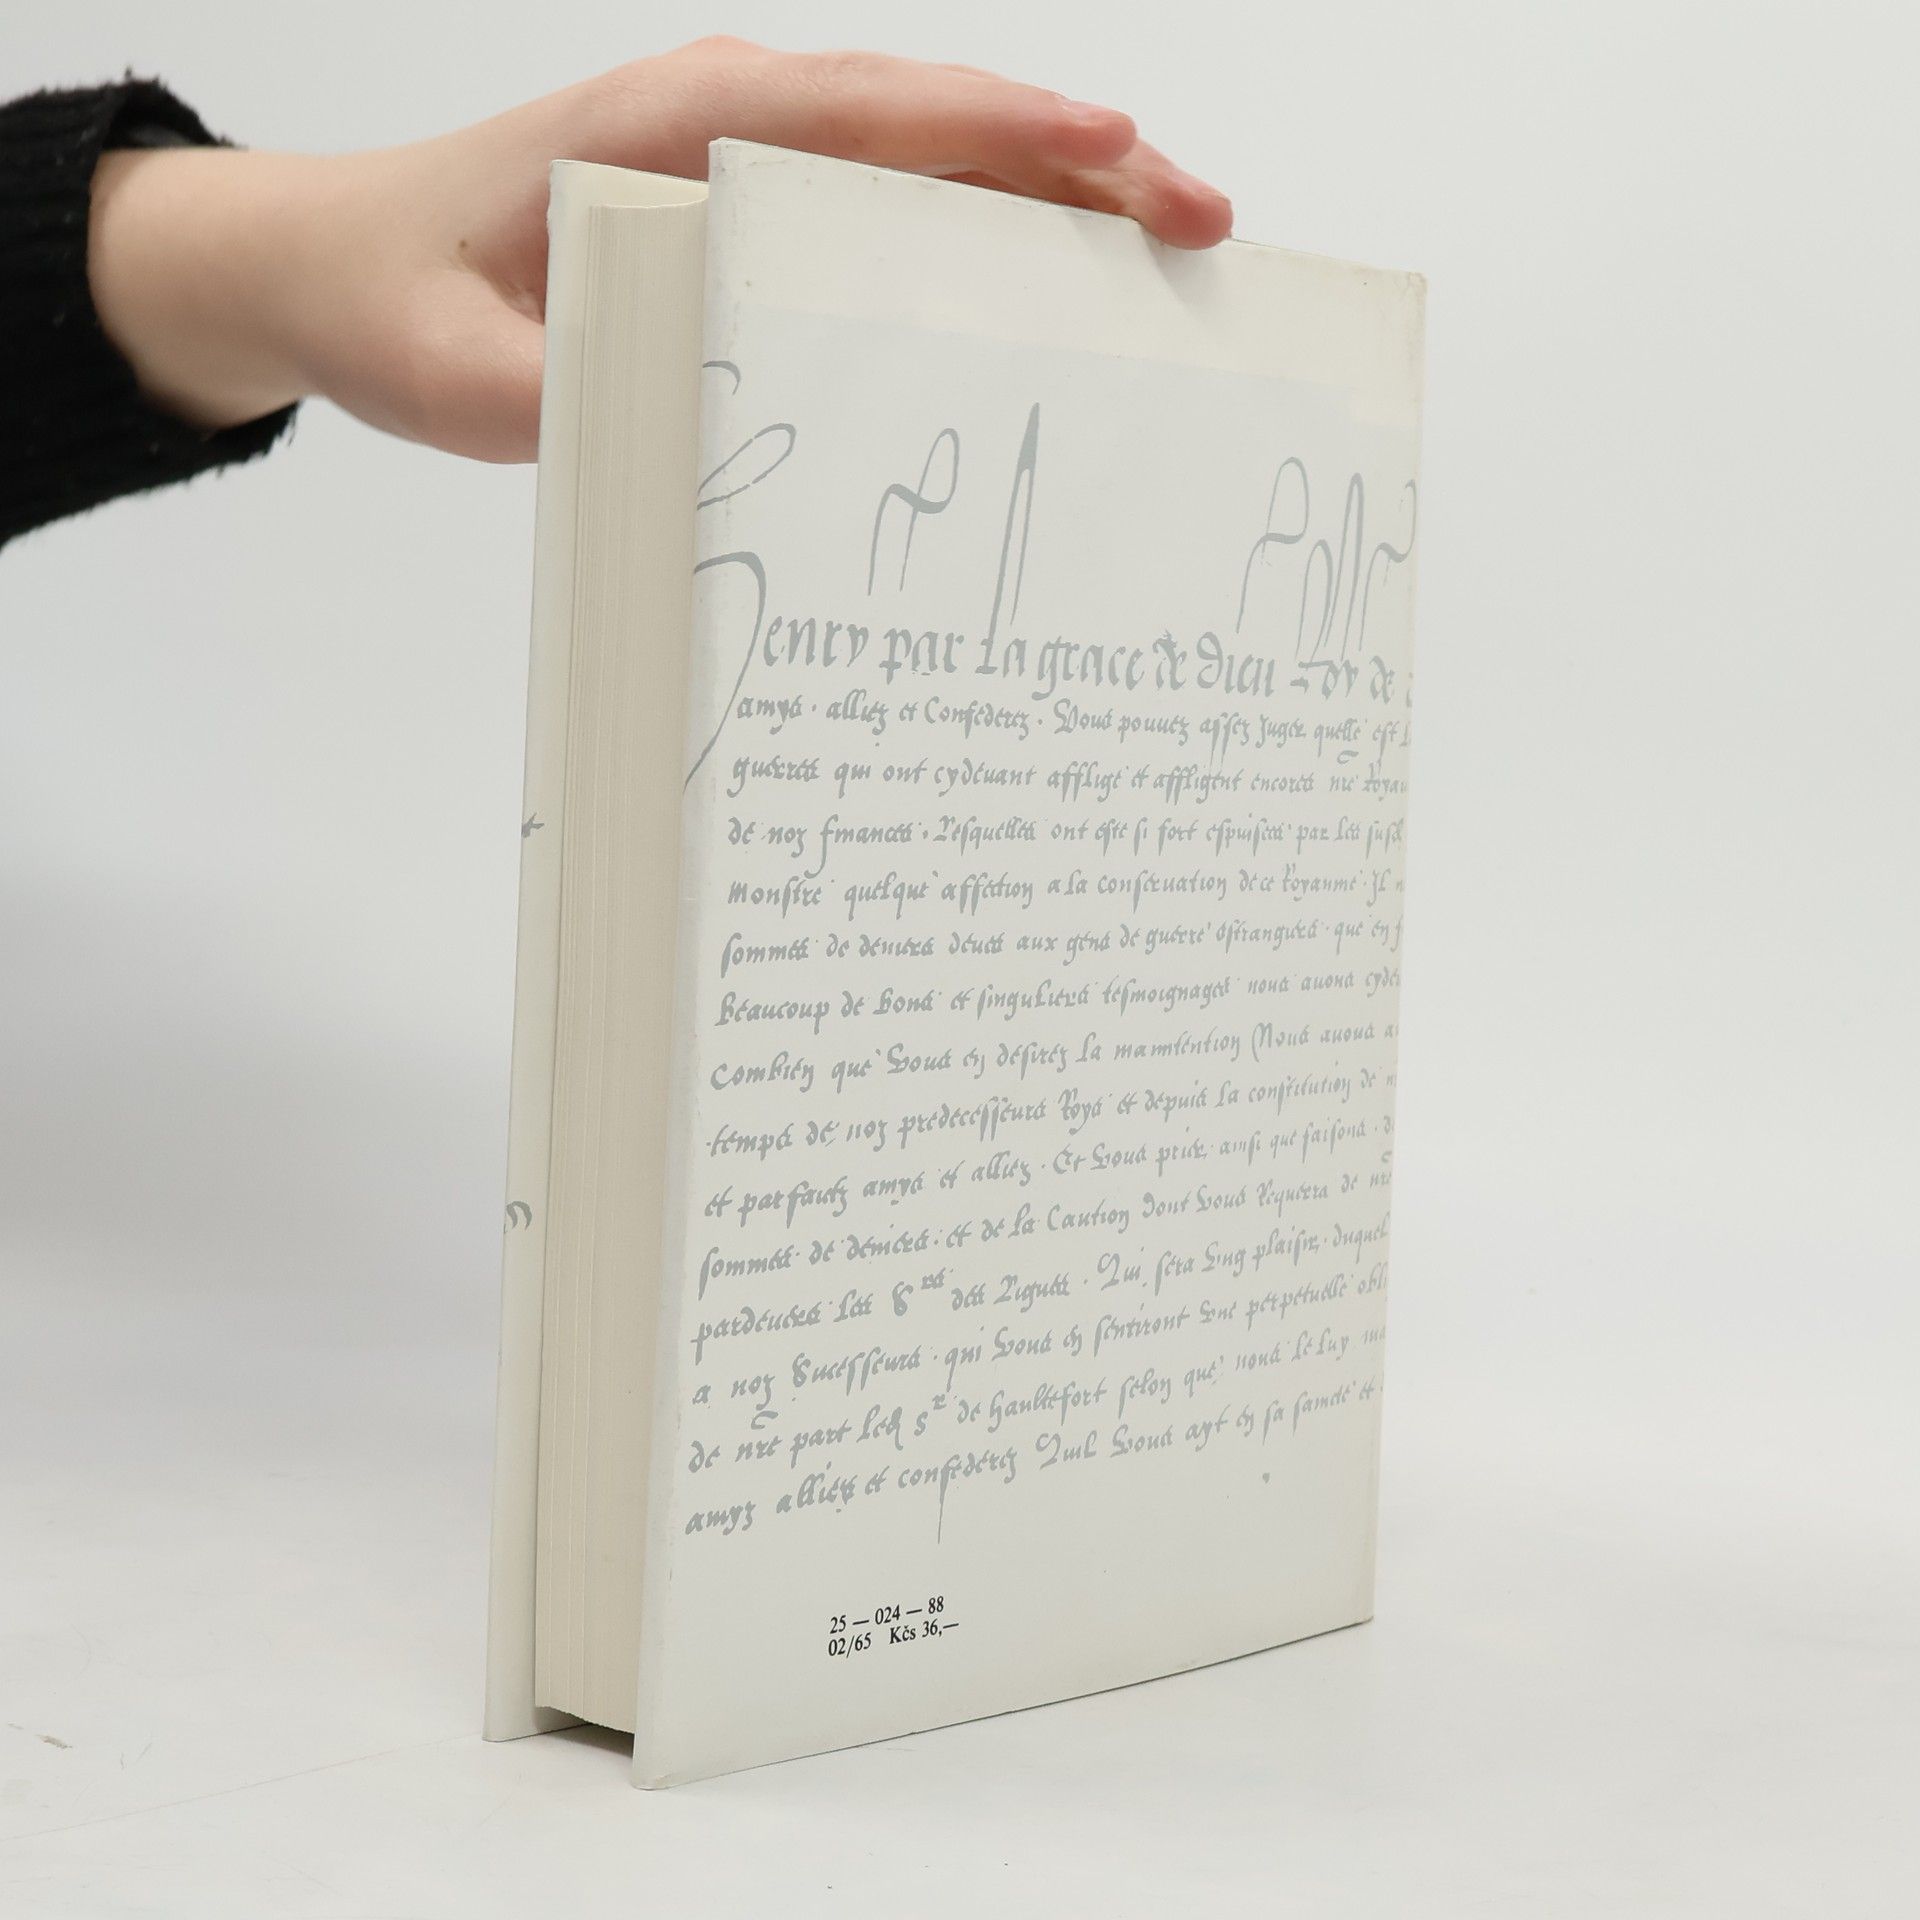 Henry par la grace de dieu Roy de
amys. alliez et Confederez. Vous pouvez assez Juger quelle est
guerres qui ont cydevant afflige et affligent encores nre Royau
de noz finances. Lesquelles ont este si fort espuisees par les susd
monstre quelque affection a la conservation de ce Royaume. Il
sommes de deniers deues aux gens de guerre estrangers. que en
beaucoup de bons et singuliers tesmoignages nous avons cyde
Combien que vous en desirez la manutention Nous avons
temps de noz predecesseurs Roys et depuis la constitution de
et parfaictz amys et alliez. Et vous prier. ainsi que faisons. d
sommes de deniers. et de la Caution dont vous Requerra de nre
pardevers les Srs des Ligues. Qui sera ung plaisir. duquel
a noz Sucesseurs. qui vous en sentiront une perpetuelle obli
de nre part led Sr de Haultefort selon que nous le luy
amyz alliez et confederez Quil vous ayt en sa saincte et
25 — 024 — 88
02/65 Kčs 36,—